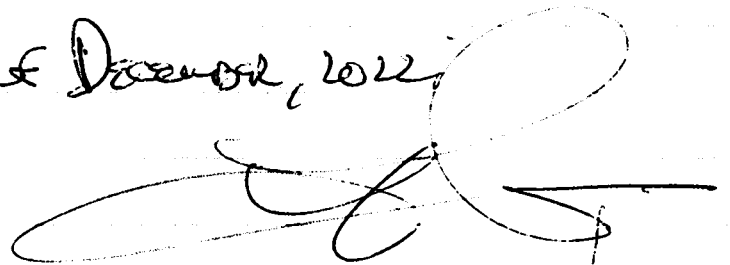 of December, 2022